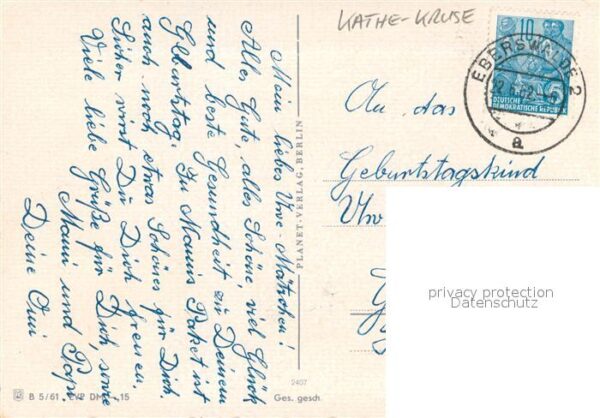 KÄTHE-KRUSE
Mein liebes Uwe-Mätzchen!
Alles Gute, alles Schöne, viel Glück
und beste Gesundheit zu Deinem
Geburtstag. In Mamis Paket ist
auch noch etwas Schönes für Dich.
Sicher wirst Du Dich freuen.
Viele liebe Grüße für Dich, sowie
Mami und Papi
Deine Omi
PLANET-VERLAG, BERLIN
10
5
DEUTSCHE
DEMOKRATISCHE REPUBLIK
EBERSWALDE 2
a
An das
Geburtstagskind
Uw
privacy protection
Datenschutz
B 5/61
15
2407
Ges. gesch.